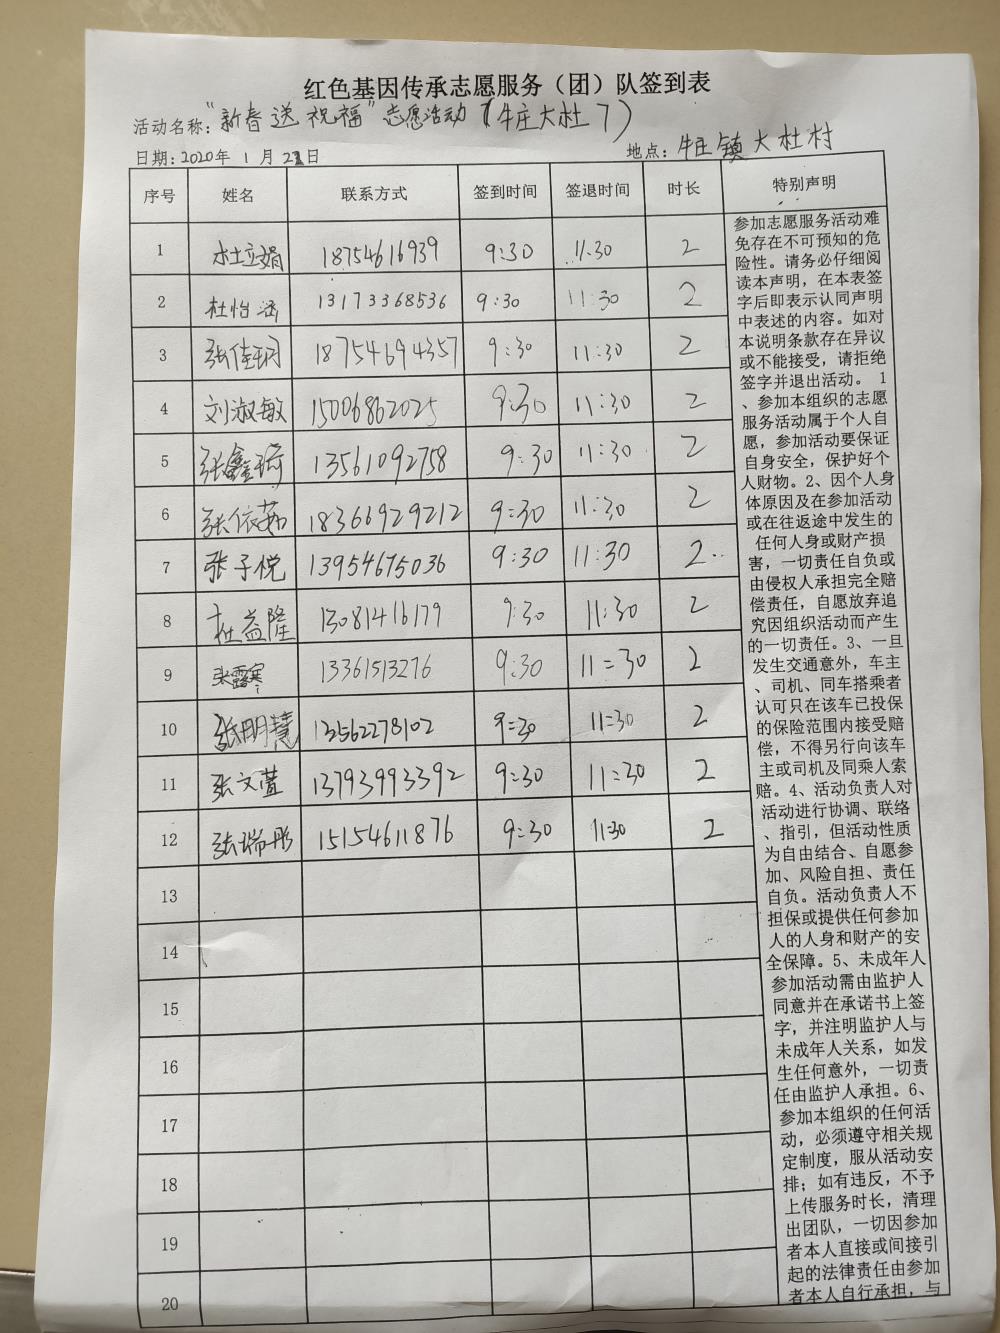 红色基因传承志愿服务（团）队签到表
活动名称："新春送祝福"志愿活动（牛庄大杜7）
日期：2020年1月2日 地点：牛庄镇大杜村
序号 姓名 联系方式 签到时间 签退时间 时长 特别声明
1 18754616939 9:30 11:30 2
2 杜怡涵 13173368536 9:30 11:30 2
3 张佳玥 18754694357 9:30 11:30 2
4 刘淑敏 15006862025 9:30 11:30 2
5 张鑫琦 13561092758 9:30 11:30 2
6 张依茹 18366929212 9:30 11:30 2
7 张子悦 13954675036 9:30 11:30 2
8 杜益隆 13081416179 9:30 11:30 2
9 张露寒 13361513276 9:30 11=30 2
10 张明慧 13562278102 9=30 11=30 2
11 张文萱 13793993392 9=30 11=30 2
12 张瑞彤 15154611876 9=30 11:30 2
13
14
15
16
17
18
19
20
参加志愿服务活动难
免存在不可预知的危
险性。请务必仔细阅
读本声明，在本表签
字后即表示认同声明
中表述的内容。如对
本说明条款存在异议
或不能接受，请拒绝
签字并退出活动。 1
、参加本组织的志愿
服务活动属于个人自
愿，参加活动要保证
自身安全，保护好个
人财物。2、因个人身
体原因及在参加活动
或在往返途中发生的
任何人身或财产损
害，一切责任自负或
由侵权人承担完全赔
偿责任，自愿放弃追
究因组织活动而产生
的一切责任。3、一旦
发生交通意外，车主
、司机、同车搭乘者
认可只在该车已投保
的保险范围内接受赔
偿，不得另行向该车
主或司机及同乘人索
赔。4、活动负责人对
活动进行协调、联络
、指引，但活动性质
为自由结合、自愿参
加、风险自担、责任
自负。活动负责人不
担保或提供任何参加
人的人身和财产的安
全保障。5、未成年人
参加活动需由监护人
同意并在承诺书上签
字，并注明监护人与
未成年人关系，如发
生任何意外，一切责
任由监护人承担。6、
参加本组织的任何活
动，必须遵守相关规
定制度，服从活动安
排；如有违反，不予
上传服务时长，清理
出团队，一切因参加
者本人直接或间接引
起的法律责任由参加
者本人自行承担，与